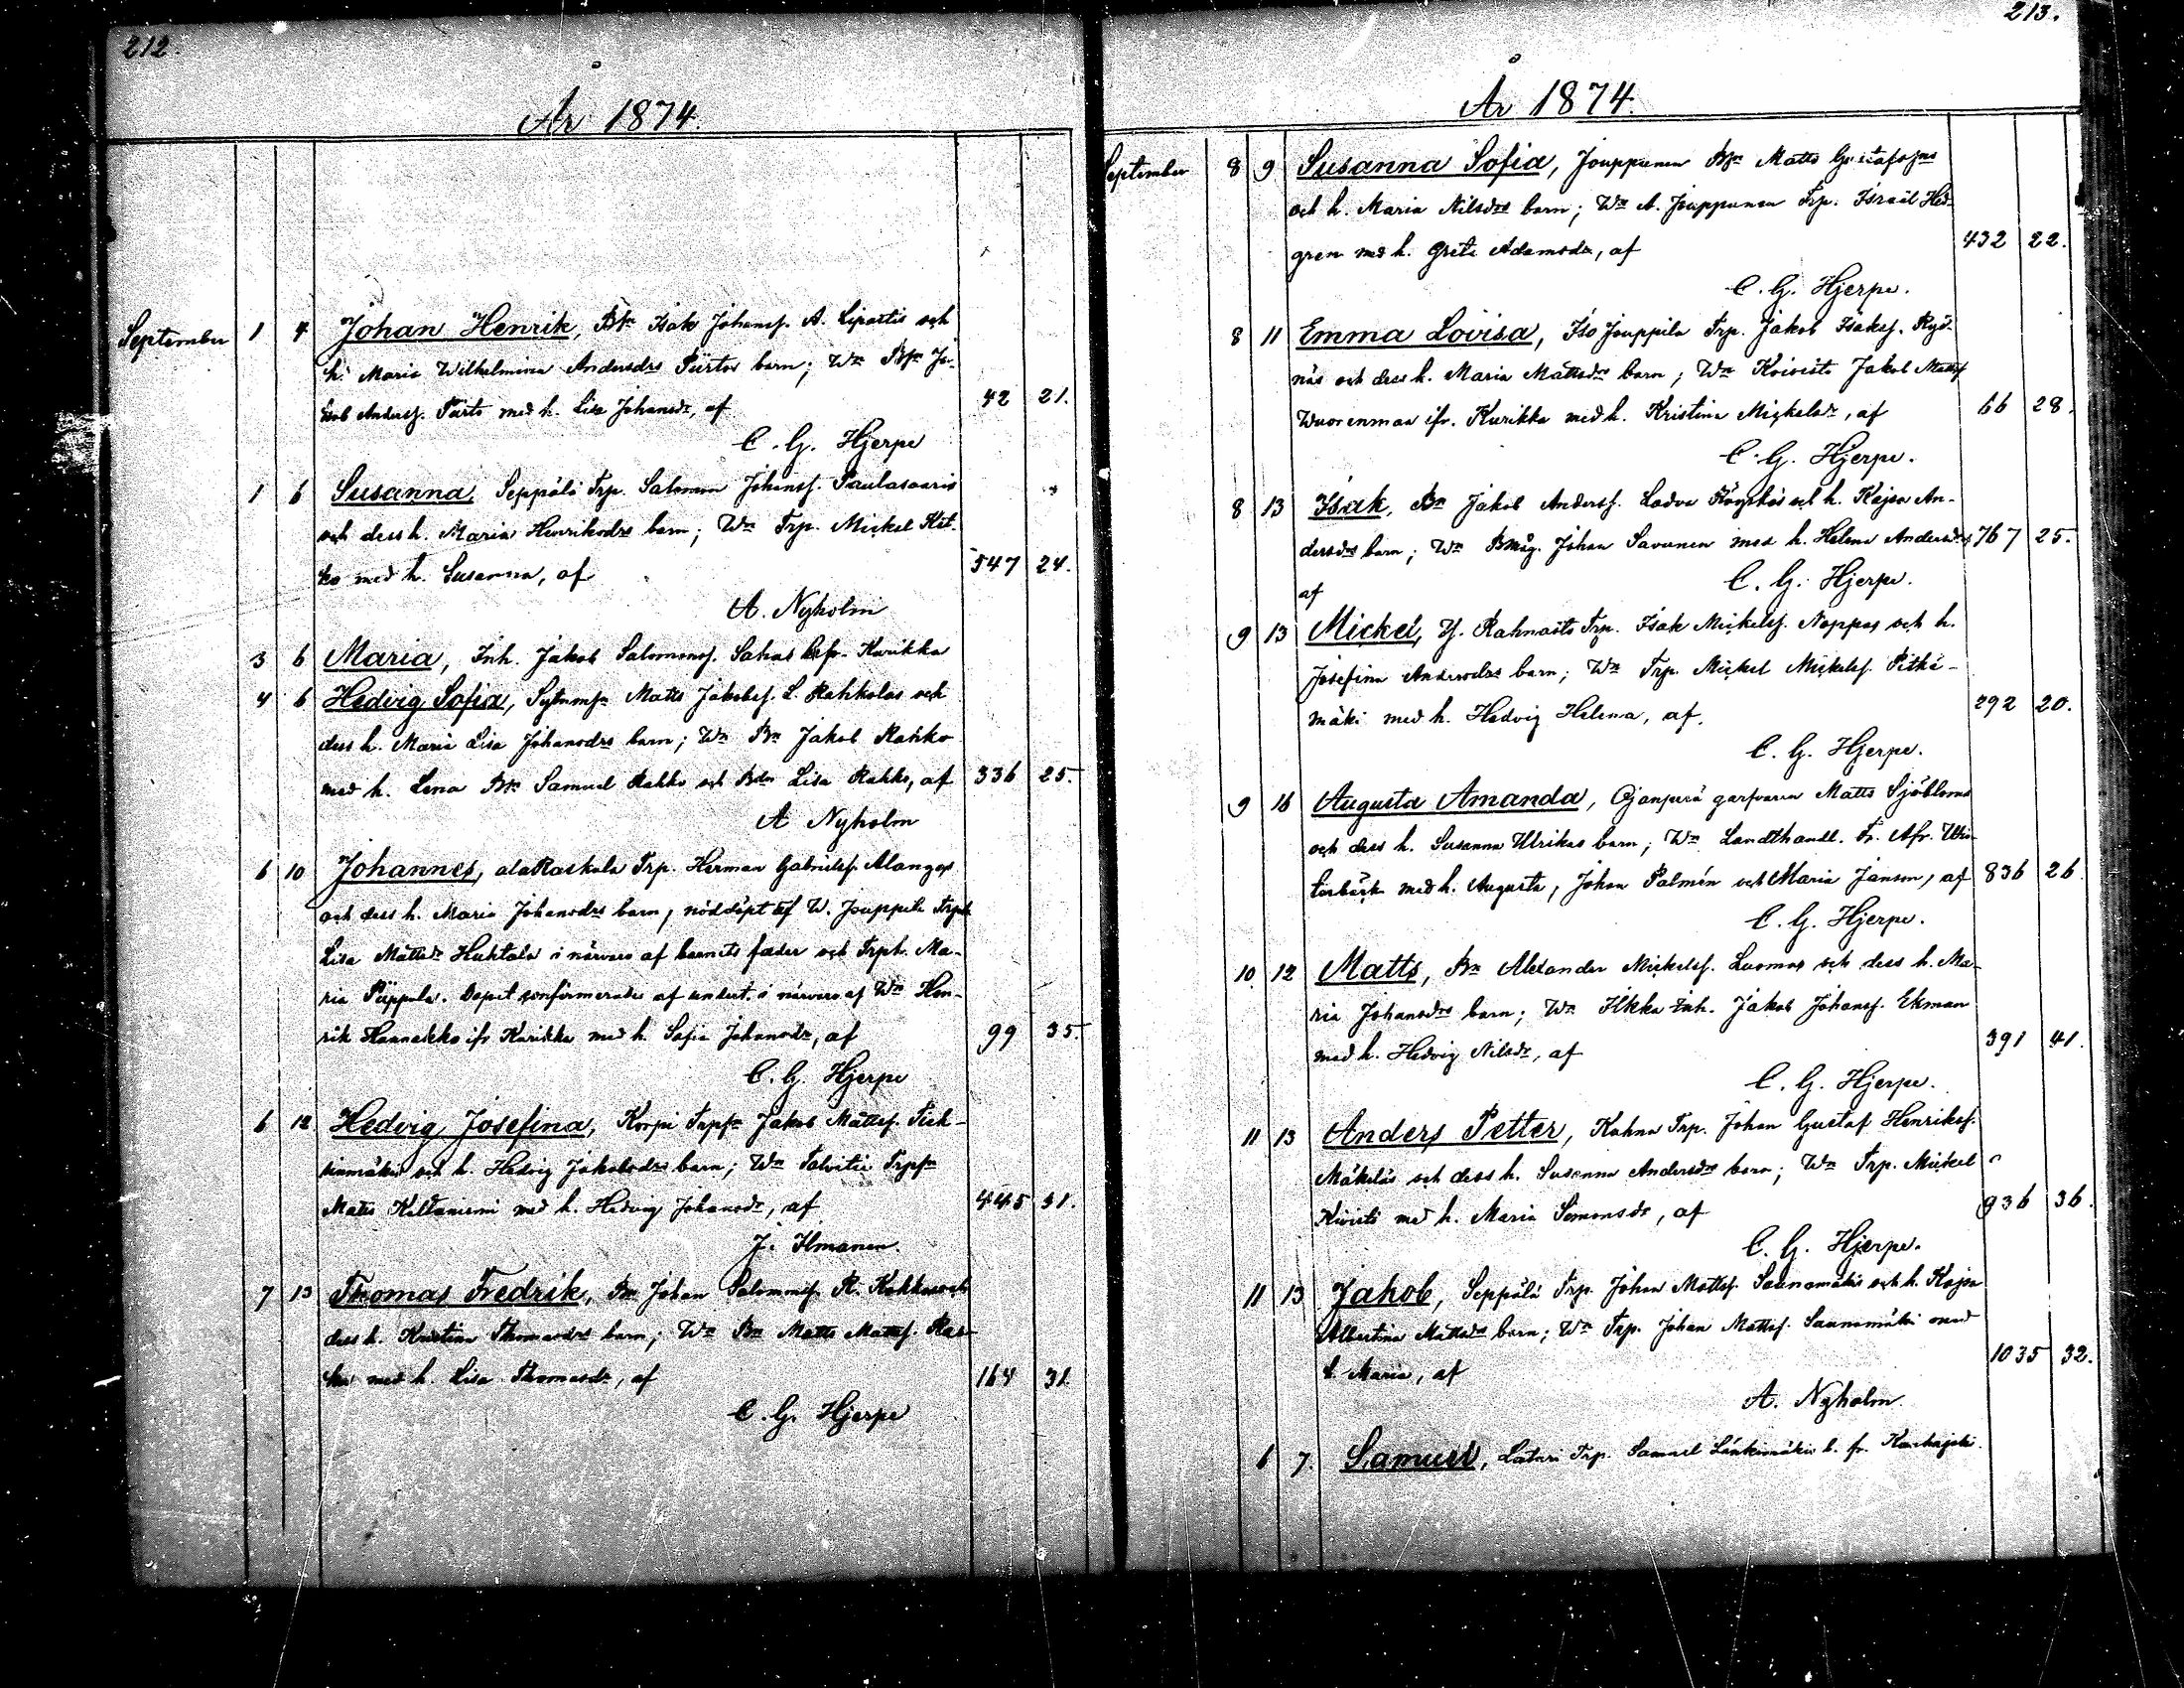 212.
År 1874.
September 1 4 Johan Henrik, Bsn Isak Johansf. A. Lipastis och
h. Maria Wilhelmina Andersdrs Piirtos barn; Wn Bsn Ja-
kob Andersf. Piirto med h. Lisa Johansdr, af 42 21.
C. G. Hjerpe
1 6 Susanna, Seppälä Trp. Salomon Johansf. Paulasaaris
och dess h. Maria Henriksdrs barn; Wn Trp. Mickel Kit-
ko med h. Susanna, af 547 24.
A. Nyholm
3 6 Maria, Inh. Jakob Salomonsf. ifr. Kurikka
4 6 Hedvig Sofia, Matts Jakobsf. L. Rahkolas och
dess h. Maria Lisa Johansdrs barn; Wn Bn Jakob Rahko
med h. Lena Bn Samuel Rahko och Bdr Lisa Rahko, af 336 25.
A Nyholm
6 10 Johannes, alaRaskala Trp. Herman Gabrielsf. Alangos
och dess h. Maria Johansdrs barn, nöddöpt af W. Jouppila
Lisa Mattsdr Huhtala i närvaro af barnets fader och Trph. Ma-
ria Piippola. Dopet konfirmerades af undert. i närvaro af Wn Hen-
rik Hannukko ifr Kurikka med h. Sofia Johansdr, af 99 35.
C. G. Hjerpe
6 12 Hedvig Josefina, Korpi Trpsn Jakob Mattsf.
och h. Hedvig Jakobsdrs barn; Wn Talvitie Trpsn
Matts Kiltaniemi med h. Hedvig Johansdr, af 445 31.
J. Ilmanen.
7 13 Thomas Fredrik, Bn Johan Salomonsf. R. och
dess h. Kristina Thomasdrs barn; Wn Bn Matts Mattsf.
med h. Lisa Thomasdr, af 164 31
C. G. Hjerpe
213.
År 1874.
September 8 9 Susanna Sofia, Jouppunen Bsn Matts Gustafsns
och h. Maria Nilsdrs barn; Wn A. Jouppunen Trp. Israël Hed-
gren med h. Greta Adamsdr, af 432 22.
C. G. Hjerpe.
8 11 Emma Lovisa, Iso Jouppila Trp. Jakob Isaksf. Ryd-
näs och dess h. Maria Mattsdrs barn; Wn Koivisto Jakob Mattsf
Wuorenmaa ifr. Kurikka med h. Kristina Mickelsdr, af 66 28.
C. G. Hjerpe.
8 13 Isak, Bn Jakob Andersf. och h. Kajsa An-
dersdrs barn; Wn Bmåg. Johan Savunen med h. Helena Andersdr, 767 25.
af C. G. Hjerpe.
9 13 Mickel, Y. Rahnasto Trp. Isak Mickelsf. Noppas och h.
Josefina Andersdrs barn; Wn Trp. Mickel Mickelsf. Pitkä-
mäki med h. Hedvig Helena, af. 292 20.
C. G. Hjerpe.
9 16 Augusta Amanda, Ojanperä garfvaren Matts Sjöbloms
och dess h. Susanna Ulrikas barn; Wn Landthandl. Fr. Afr.
med h. Augusta, Johan Palmén och Maria Janson, af 836 26.
C. G. Hjerpe.
10 12 Matts, Bn Alexander Mickelsf. Luomas och dess h. Ma-
ria Johansdrs barn; Wn Ilkka Inh. Jakob Johansf. Ekman
med h. Hedvig Nilsdr, af 391 41.
C. G. Hjerpe.
11 13 Anders Petter, Kahna Trp. Johan Gustaf Henriksf.
Mäkeläs och dess h. Susanna Andersdrs barn; Wn Trp. Mickel
Kivistö med h. Maria Simonsdr, af 936 36.
C. G. Hjerpe.
11 13 Jakob, Seppälä Trp. Johan Mattsf. Saunamäkis och h. Kajsa
Albertina Mattsdrs barn; Wn Trp. Johan Mattsf. Saunamäki med
h. Maria, af 1035 32.
A. Nyholm.
6 7. Samuel, Trp. Samuel b. fr. Kauhajoki.